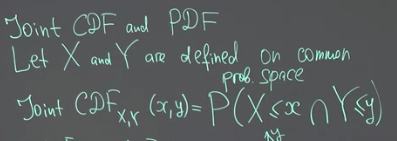 Joint CDF and PDF
Let X and Y are defined on common
prob. space
Joint CDF_{X,Y} (x,y) = P(X ≤ x ∩ Y ≤ y)